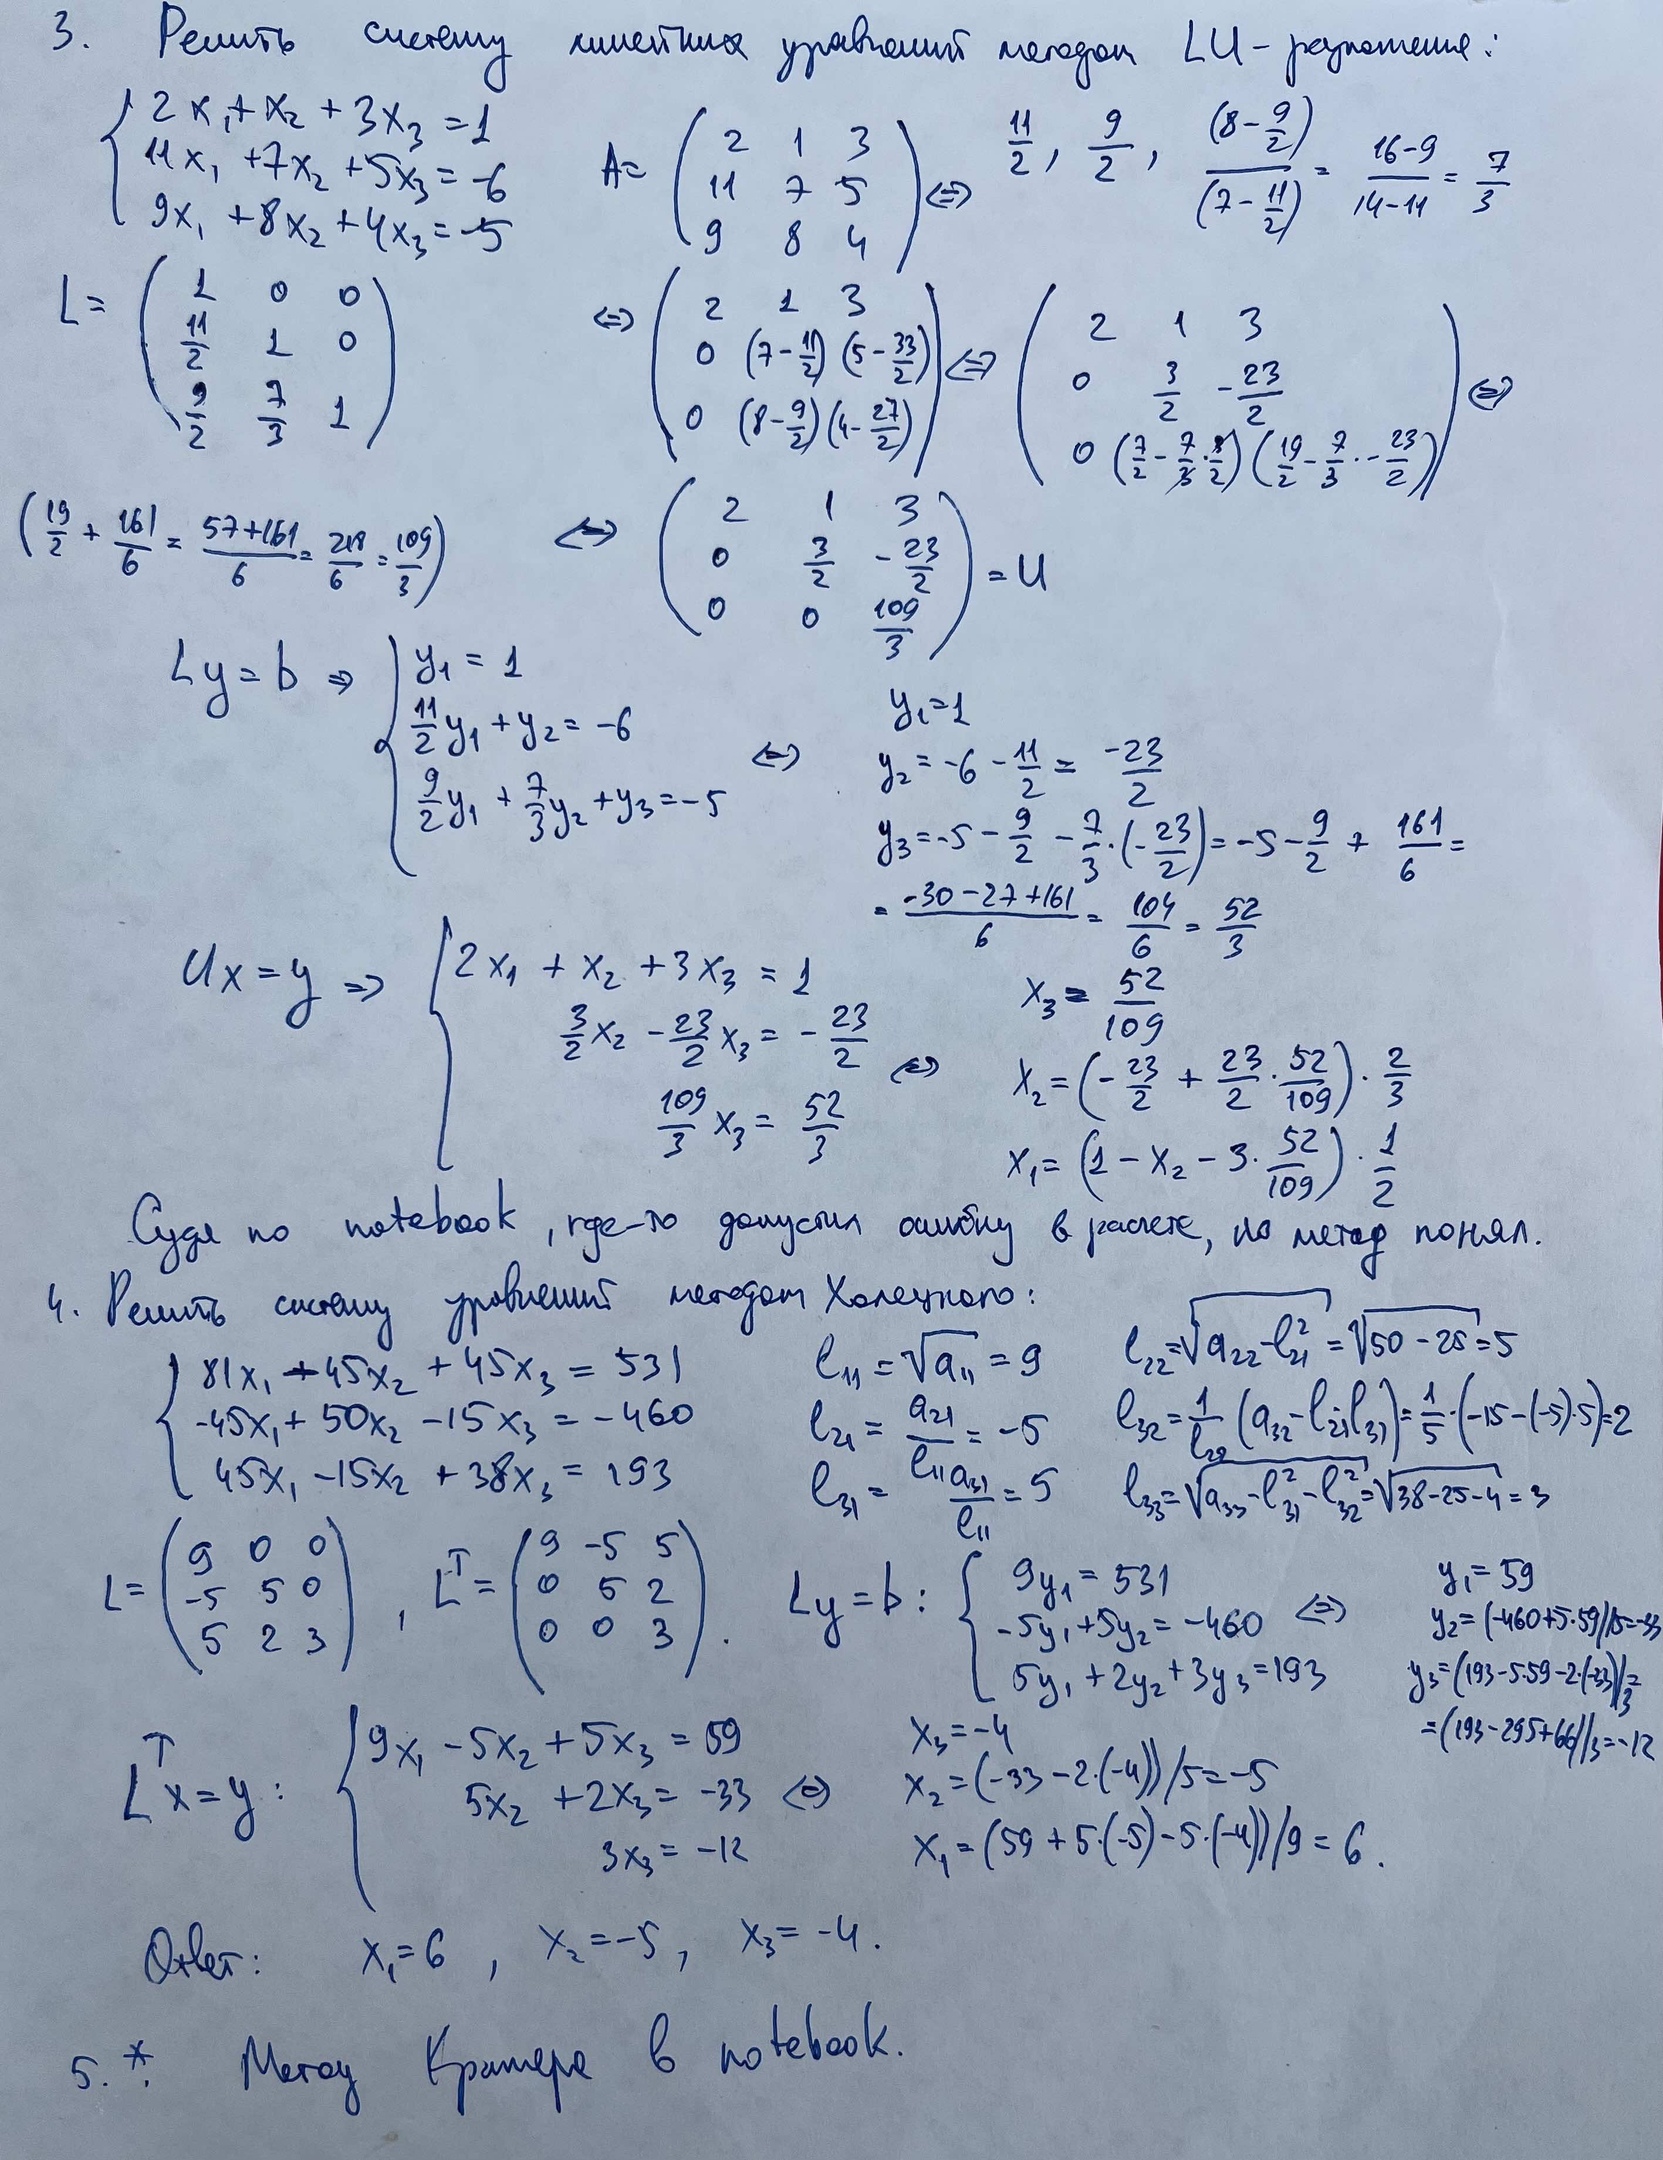 3. Решить систему линейных уравнений методом LU-разложения:
{ 2x₁+x₂+3x₃=1
11x₁+7x₂+5x₃=-6
9x₁+8x₂+4x₃=-5
A= ( 2 1 3
11 7 5
9 8 4 ) ⇔ 11/2, 9/2, (8-9/2)/(7-11/2) = (16-9)/(14-11) = 7/3
L= ( 1 0 0
11/2 1 0
9/2 7/3 1 )
⇔ ( 2 1 3
0 (7-11/2) (5-33/2)
0 (8-9/2) (4-27/2) ) ⇔ ( 2 1 3
0 3/2 -23/2
0 (7/2-7/3·3/2) (19/2-7/3·-23/2) ) ⇔
(19/2+161/6=(57+161)/6=218/6=109/3)
⇔ ( 2 1 3
0 3/2 -23/2
0 0 109/3 ) = U
Ly=b ⇒ { y₁=1
11/2y₁+y₂=-6
9/2y₁+7/3y₂+y₃=-5
⇔ y₁=1
y₂=-6-11/2=-23/2
y₃=-5-9/2-7/3·(-23/2)=-5-9/2+161/6=
=(-30-27+161)/6=104/6=52/3
Ux=y ⇒ { 2x₁+x₂+3x₃=1
3/2x₂-23/2x₃=-23/2
109/3x₃=52/3
⇔ x₃=52/109
x₂=(-23/2+23/2·52/109)·2/3
x₁=(1-x₂-3·52/109)·1/2
Судя по notebook, где-то допустил ошибку в расчете, но метод понял.
4. Решить систему уравнений методом Холецкого:
{ 81x₁-45x₂+45x₃=531
-45x₁+50x₂-15x₃=-460
45x₁-15x₂+38x₃=193
l₁₁=√a₁₁=9
l₂₁=a₂₁/l₁₁=-5
l₃₁=a₃₁/l₁₁=5
l₂₂=√(a₂₂-l²₂₁)=√(50-25)=5
l₃₂=1/l₂₂(a₃₂-l₂₁l₃₁)=1/5·(-15-(-5)·5)=2
l₃₃=√(a₃₃-l²₃₁-l²₃₂)=√(38-25-4)=3
L=( 9 0 0
-5 5 0
5 2 3 ), Lᵀ=( 9 -5 5
0 5 2
0 0 3 ).
Ly=b: { 9y₁=531
-5y₁+5y₂=-460
5y₁+2y₂+3y₃=193
⇔ y₁=59
y₂=(-460+5·59)/5=-33
y₃=(193-5·59-2·(-33))/3=
=(193-295+66)/3=-12
Lᵀx=y: { 9x₁-5x₂+5x₃=59
5x₂+2x₃=-33
3x₃=-12
⇔ x₃=-4
x₂=(-33-2·(-4))/5=-5
x₁=(59+5·(-5)-5·(-4))/9=6.
Ответ: x₁=6, x₂=-5, x₃=-4.
5.* Метод Крамера в notebook.